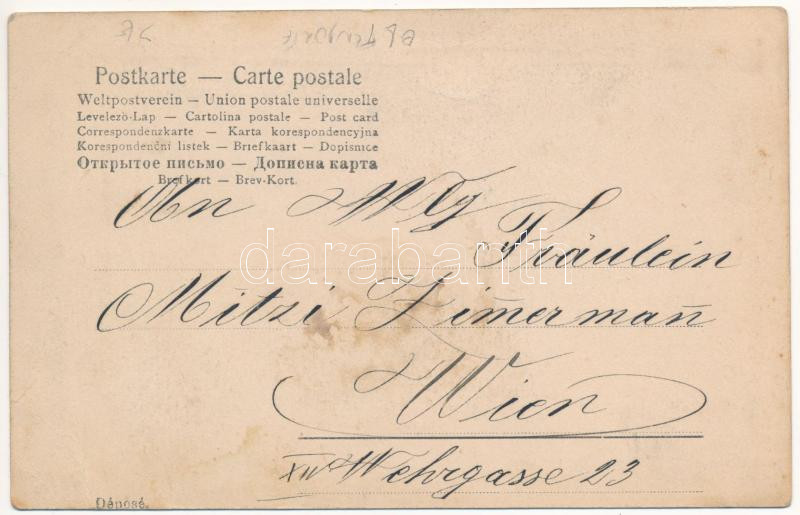 Postkarte — Carte postale
Weltpostverein — Union postale universelle
Levelezö-Lap — Cartolina postale — Post card
Correspondenzkarte — Karta korespondencyjna
Korespondenční listek — Briefkaart — Dopisnice
Открытое письмо — Дописна карта
Brefkort — Brev-Kort.
An
Fräulein
Mitzi Zim̄erman̄
Wien
Wehrgasse 23
Déposé.
darabanth